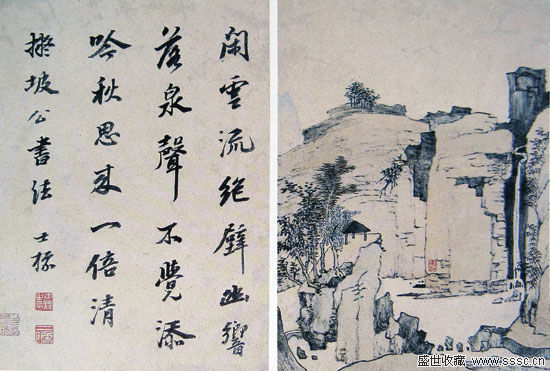 閑雲流絶壁幽響
落泉聲不覺添
吟秋思來一倍清
擬坡公書法 士標
盛世收藏 www.sssc.cn